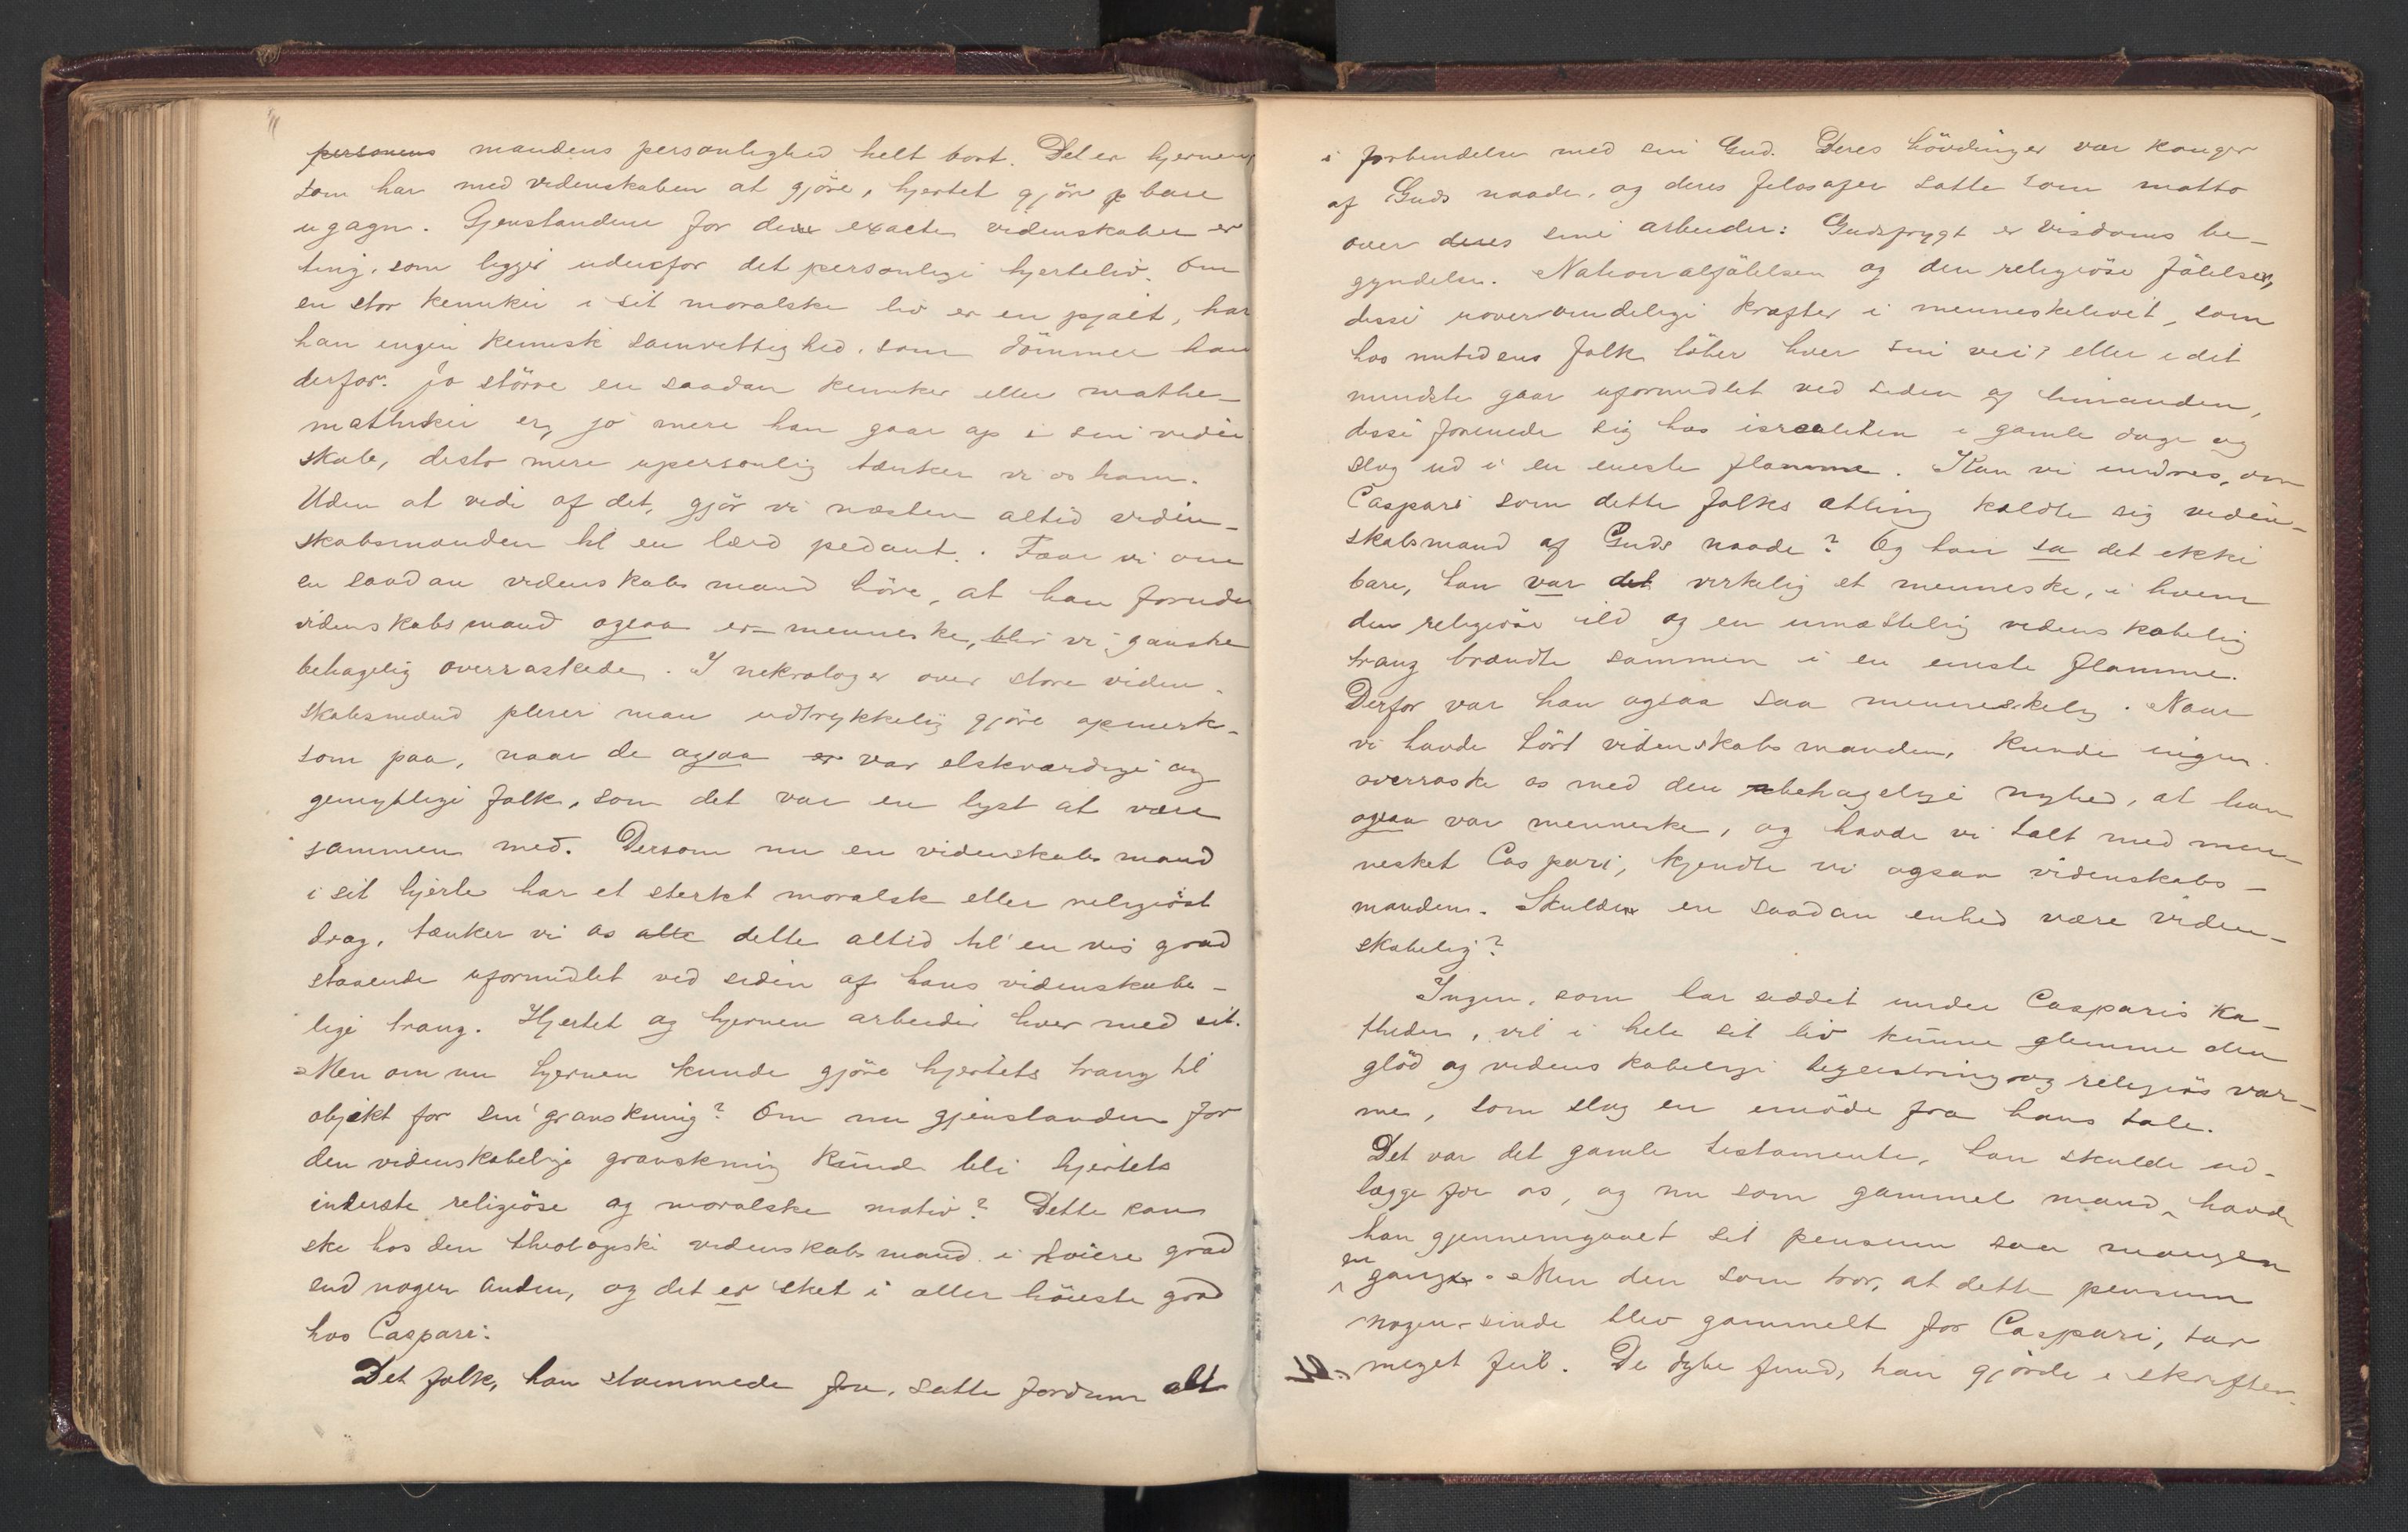 personens mandens personlighed helt bort. Det er hjernen,
som har med videnskaben at gjöre, hjertet gjör bare
ugagn. Gjenstandene for de exacte videnskaber er
ting, som ligger udenfor det personlige hjerteliv. Om
en stor kemiker i sit moralske liv er en pjalt, har
han ingen kemisk samvittighed, som dömmer ham
derfor. Jo större en saadan kemiker eller mathe-
mathiker er, jo mere han gaar op i sin viden
skab, desto mere upersonlig tænker vi os ham.
Uden at vide af det, gjör vi næsten altid viden-
skabsmanden til en lærd pedant. Faar vi om
en saadan videnskabsmand höre, at han foruden
videnskabsmand ogsaa er menneske, blir vi ganske
behagelig overraskede. I nekrologer over store viden-
skabsmænd pleier man udtrykkelig gjöre opmerk-
som paa, naar de ogsaa er var elskværdige og
gemytlige folk, som det var en lyst at være
sammen med. Dersom nu en videnskabsmand
i sit hjerte har et sterkt moralsk eller religiöst
drag, tænker vi os alte dette altid til en vis grad
staaende uformidlet ved siden af hans videnskabe-
lige trang. Hjertet og hjernen arbeider hver med sit.
Men om nu hjernen kunde gjöre hjertets trang til
objekt for sin granskning? Om nu gjenstanden for
den videnskabelige granskning kunde bli hjertets
inderste religiöse og moralske motiv? Dette kan
ske hos den theologiske videnskabsmand i höiere grad
end nogen anden, og det er sket i aller höieste grad
hos Caspari.
Det folk, han stammede fra, satte fordum alt
i forbindelse med sin Gud. Deres hövdinger var konger
af Guds naade, og deres filosofer satte som motto
over deres sine arbeider: Gudsfrygt er visdoms be-
gyndelse. Nationalfölelsen og den religiöse fölelse,
disse uovervindelige kræfter i menneskelivet, som
hos nutidens folk löber hver sin vei, eller i det
mindste gaar uformidlet ved siden af hinanden,
disse forenede sig hos israeliten i gamle dage og
slog ud i en eneste flamme. Kan vi undres, om
Caspari som dette folks ætling kaldte sig viden-
skabsmand af Guds naade? Og han sa det ikke
bare, han var det virkelig et menneske, i hvem
den religiöse ild og en umættelig videnskabelig
trang brændte sammen i en eneste flamme.
Derfor var han ogsaa saa menneskelig. Naar
vi havde hört videnskabsmanden, kunde ingen
overraske os med den behagelige nyhed, at han
ogsaa var menneske, og havde vi talt med men-
nesket Caspari, kjendte vi ogsaa videnskabs-
manden. Skulde en saadan enhed være viden-
skabelig?
Ingen, som har siddet under Casparis ka-
theder, vil i hele sit liv kunne glemme den
glöd og videnskabelige begeistring og religiös var-
me, som slog en imöde fra hans tale.
Det var det gamle testamente, han skulde ud-
lægge for os, og nu som gammel mand, havde
han gjennemgaaet sit pensum saa mangen
en gang. Men den som tror, at dette pensum
nogensinde blev gammelt for Caspari, tar
meget feil. De dybe fund, han gjorde i skriften